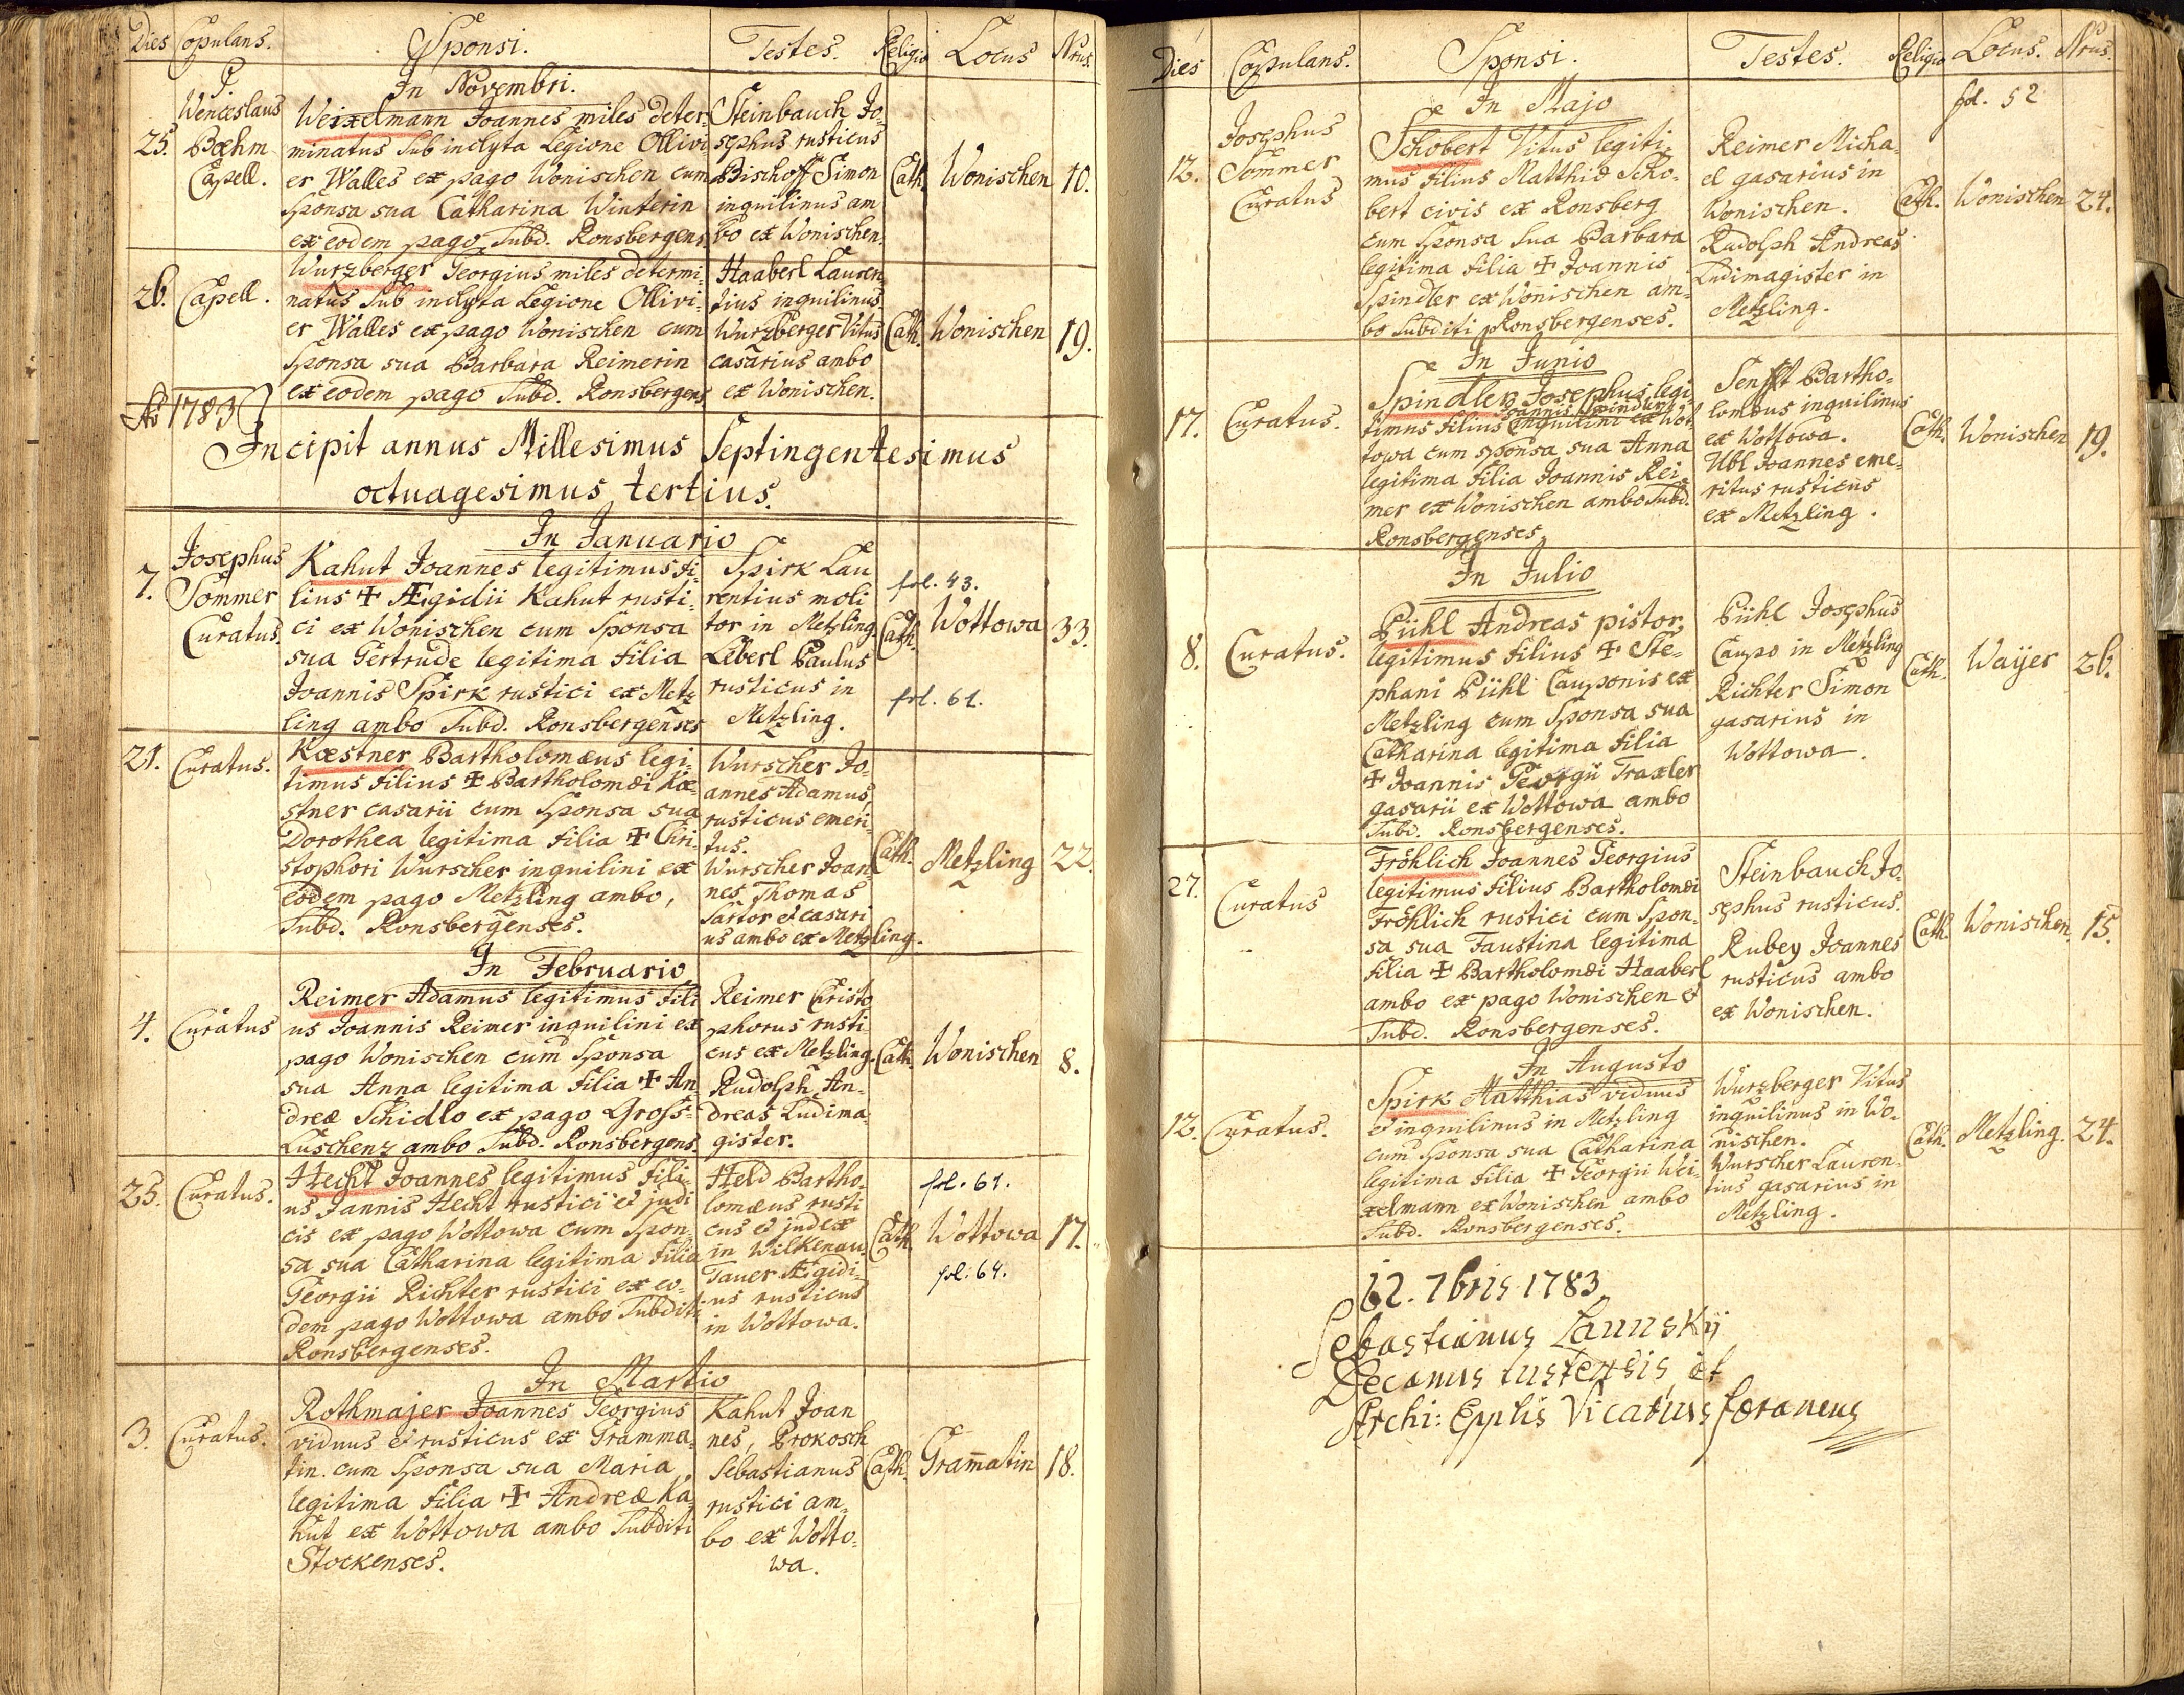 Dies Copulans. Sponsi. Testes. Religio Locus Nrus.
In Novembri.
25. P. Wenceslaus Bœhm Capell.
Weixelmann Joannes miles deter-
minatus sub inclyta Legione Ollivi-
er Walles ex pago Wonischen cum
Sponsa sua Catharina Winterin
ex eodem pago Subd. Ronsbergens.
Steinbauch Jo-
sephus rusticus
Bischoff Simon
inquilinus am
bo ex Wonischen.
Cath. Wonischen 10.
26. Capell.
Wurzberger Georgius miles determi-
natus sub inclyta Legione Ollivi-
er Walles ex pago Wonischen cum
Sponsa sua Barbara Reimerin
ex eodem pago Subd. Ronsbergens
Haaberl Lauren
tius inquilinus
Wurzberger Vitus
casarius ambo
ex Wonischen.
Cath. Wonischen 19.
Ao 1783
Incipit annus Millesimus Septingentesimus
octuagesimus tertius.
In Januario
7. Josephus
Sommer
Curatus.
Kahut Joannes legitimus fi-
lius ✝ Ægidii Kahut rusti-
ci ex Wonischen cum Sponsa
sua Gertrude legitima filia
Joannis Spirk rustici ex Metz
ling ambo Subd. Ronsbergenses
Spirk Lau
rentius moli
tor in Metzling.
Leberl Paulus
rusticus in
Metzling.
fol. 43.
Cath. Wottowa 33.
fol. 61.
21. Curatus.
Kœstner Bartholomæus legi-
timus filius ✝ Bartholomæi Kœ-
stner casarii cum Sponsa sua
Dorothea legitima filia ✝ Chri-
stophori Wurscher inquilini ex
eodem pago Metzling ambo,
Subd. Ronsbergenses.
Wurscher Jo-
annes Adamus,
rusticus emeri-
tus.
Wurscher Joan
nes Thomas
Sartor et casari
us ambo ex Metzling.
Cath. Metzling 22.
In Februario
4. Curatus
Reimer Adamus legitimus fili
us Joannis Reimer inquilini ex
pago Wonischen cum Sponsa
sua Anna legitima filia ✝ An
dreæ Schidlo ex pago Gross-
Luschenz ambo Subd. Ronsbergens.
Reimer Christo
phorus rusti
cus ex Metzling.
Rudolph An-
dreas Ludima
gister.
Cath. Wonischen 8.
25. Curatus.
Hecht Joannes legitimus fili-
us Jannis Hecht rustici et judi
cis ex pago Wottowa cum Spon-
sa sua Catharina legitima filia
Georgii Richter rustici ex eo-
dem pago Wottowa ambo Subditi
Ronsbergenses.
Held Bartho-
lomæus rusti
cus et judex
in Wilkenau.
Tauer Ægidi-
us rusticus
in Wottowa.
fol. 61.
Cath. Wottowa 17.
fol. 64.
In Martio
3. Curatus.
Rothmajer Joannes Georgius
viduus et rusticus ex Gramma-
tin. cum Sponsa sua Maria
legitima filia ✝ Andreæ Ka
hut ex Wottowa ambo Subditi
Stockenses.
Kahut Joan
nes, Prokosch
Sebastianus
rustici am-
bo ex Wotto-
wa.
Cath. Gram̄atin 18.
Dies Copulans. Sponsi. Testes. Religio Locus. Nrus.
In Majo
12. Josephus
Sommer
Curatus
Schobert Vitus legiti-
mus filius Matthiæ Scho-
bert civis ex Ronsberg
cum Sponsa sua Barbara
legitima filia ✝ Joannis
Spindler ex Wonischen am-
bo Subditi Ronsbergenses.
Reimer Micha-
el gasarius in
Wonischen.
Rudolph Andreas
Ludimagister in
Metzling.
fol. 52
Cath. Wonischen 24.
In Junio
17. Curatus.
Spindler Josephus legi
Joannis Spindler
timus filius inquilini ex Wot
towa cum sponsa sua Anna
legitima filia Joannis Rei-
mer ex Wonischen ambo Subd.
Ronsbergenses
Senft Bartho-
lomæus inquilinus
ex Wottowa.
Ubl Joannes eme-
ritus rusticus
ex Metzling.
Cath. Wonischen 19.
In Julio
8. Curatus.
Pühl Andreas pistor,
legitimus filius ✝ Ste-
phani Pühl Cauponis ex
Metzling cum Sponsa sua
Catharina legitima filia
✝ Joannis Georgii Traxler
gasarii ex Wottowa ambo
Subd. Ronsbergenses.
Pühl Josephus
Caupo in Metzling
Richter Simon
gasarius in
Wottowa.
Cath. Waÿer 26.
27. Curatus
Fröhlich Joannes Georgius
legitimus filius Bartholomæi
Fröhlich rustici cum Spon-
sa sua Faustina legitima
filia ✝ Bartholomæi Haaberl
ambo ex pago Wonischen et
Subd. Ronsbergenses.
Steinbauch Jo-
sephus rusticus.
Rubey Joannes
rusticus ambo
ex Wonischen.
Cath. Wonischen. 15.
In Augusto
12. Curatus.
Spirk Matthias viduus
et inquilinus in Metzling
cum Sponsa sua Catharina
legitima filia ✝ Georgii Wei-
xelmann ex Wonischen ambo
Subd. Ronsbergenses.
Wurzberger Vitus
inquilinus in Wo-
nischen.
Wurscher Lauren-
tius gasarius in
Metzling.
Cath. Metzling. 24.
12. 7bris 1783
Sebastianus
Decanus et
Archi: Epplis Vicarius foraneus